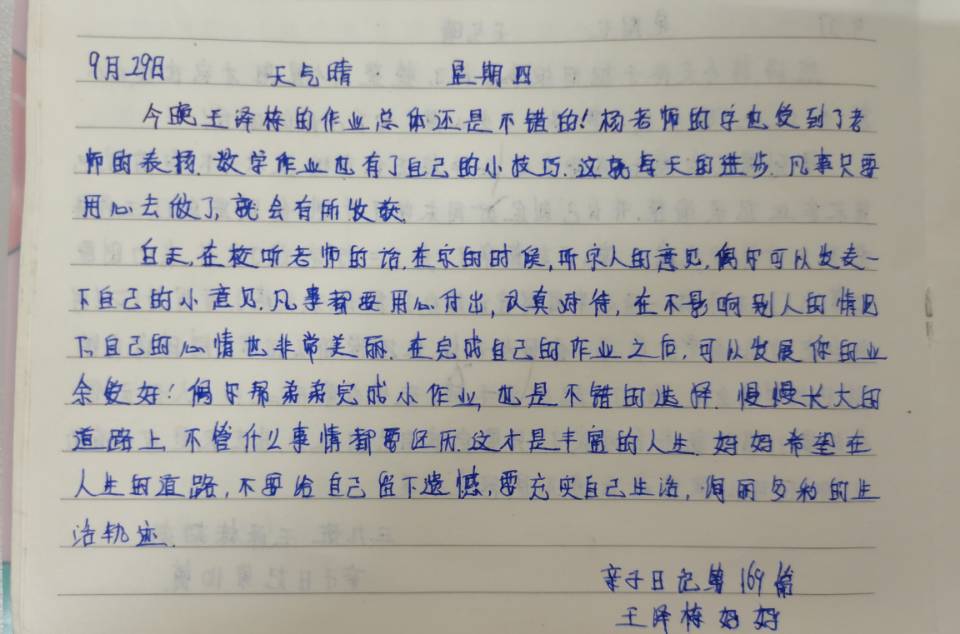 9月29日 天气晴 星期四
今晚王泽栋的作业总体还是不错的!杨老师的字也受到了老
师的表扬.数学作业也有了自己的小技巧.这就每天的进步.凡事只要
用心去做了,就会有所收获.
白天,在校听老师的话.在家的时候,听家人的意见,偶尔可以发表一
下自己的小意见.凡事都要用心付出,认真对待,在不影响别人的情况
下,自己的心情也非常美丽.在完成自己的作业之后,可以发展你的业
余爱好!偶尔帮弟弟完成小作业,也是不错的选择.慢慢长大的
道路上,不管什么事情都要经历.这才是丰富的人生.妈妈希望在
人生的道路,不要给自己留下遗憾,要充实自己生活,绚丽多彩的生
活轨迹.
亲子日记第169篇
王泽栋妈妈